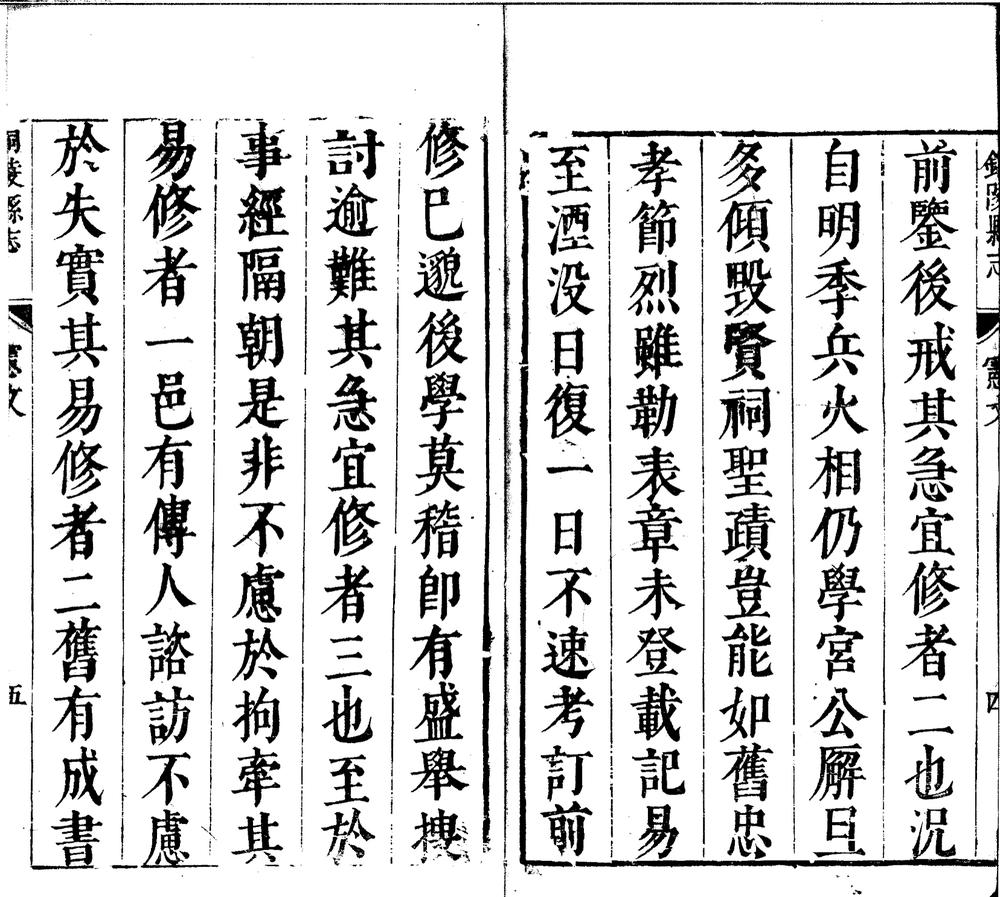 前鑒後戒其急宜修者二也況
自明季兵火相仍學宮公廨旦
多傾毀賢祠聖蹟豈能如舊忠
孝節烈雖勒表章未登載記易
至湮没日復一日不速考訂前
修已邈後學莫稽卽有盛舉搜
討逾難其急宜修者三也至於
事經隔朝是非不慮於拘牽其
易修者一邑有傳人諮訪不慮
於失實其易修者二舊有成書
銅陵縣志
憲文
五